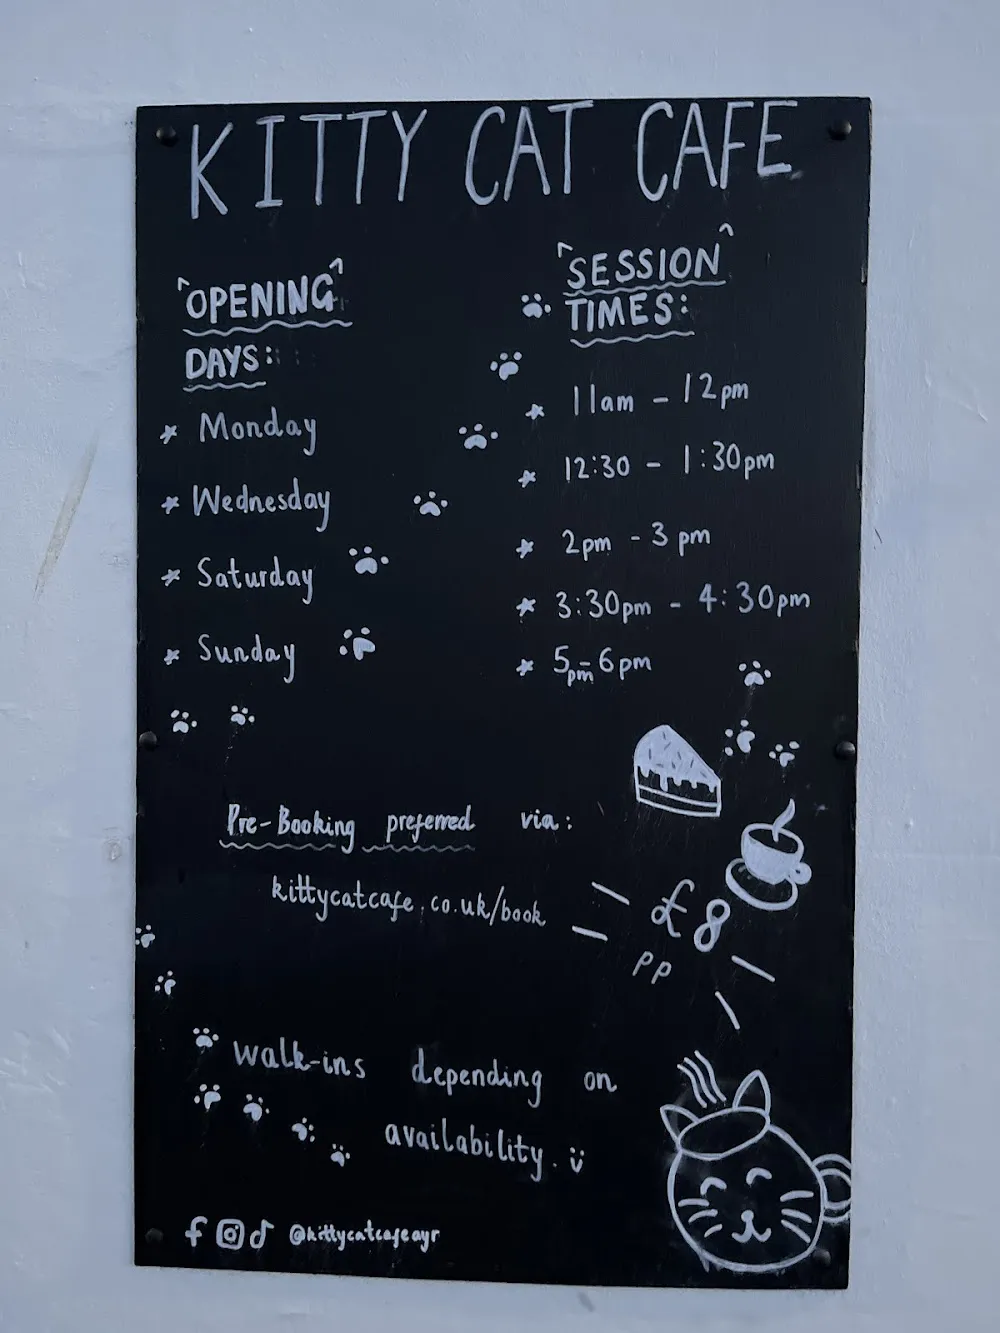 KITTY CAT CAFE
OPENING
DAYS:
* Monday
* Wednesday
* Saturday
* Sunday
SESSION
TIMES:
* 11am - 12pm
* 12:30 - 1:30pm
* 2pm - 3pm
* 3:30pm - 4:30pm
* 5pm - 6pm
Pre-Booking preferred via:
kittycatcafe.co.uk/book
£8
PP
Walk-ins depending on
availability. ü
@kittycatcafeayr